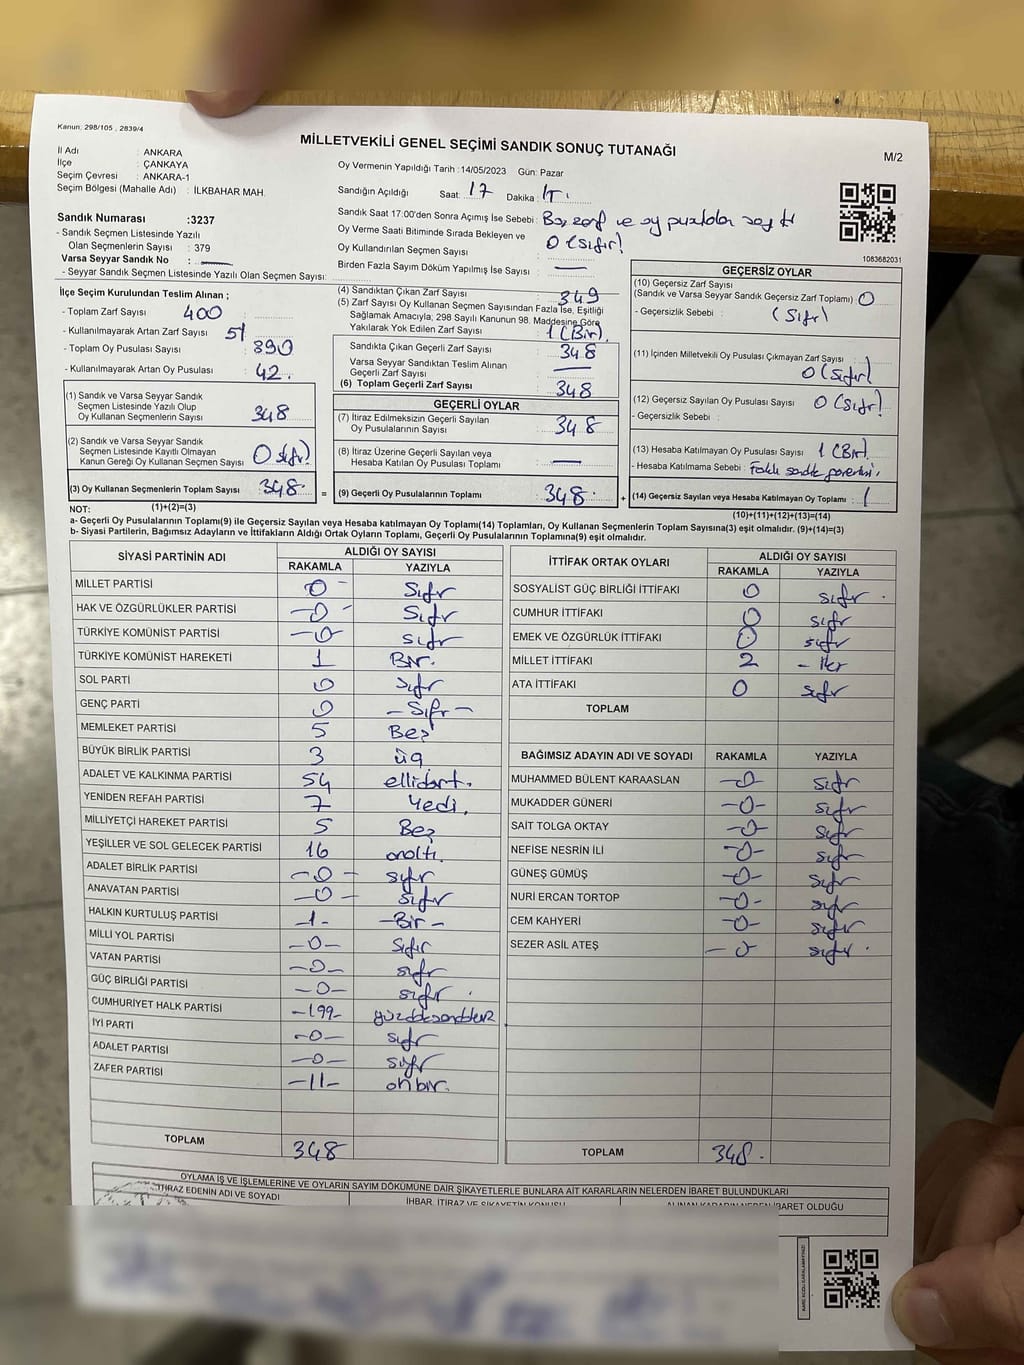 Kanun: 298/105 , 2839/4
MİLLETVEKİLİ GENEL SEÇİMİ SANDIK SONUÇ TUTANAĞI
M/2
İl Adı : ANKARA
İlçe : ÇANKAYA
Seçim Çevresi : ANKARA-1
Seçim Bölgesi (Mahalle Adı) : İLKBAHAR MAH.
Sandık Numarası :3237
- Sandık Seçmen Listesinde Yazılı
Olan Seçmenlerin Sayısı : 379
Varsa Seyyar Sandık No : —
- Seyyar Sandık Seçmen Listesinde Yazılı Olan Seçmen Sayısı:
Oy Vermenin Yapıldığı Tarih :14/05/2023 Gün: Pazar
Sandığın Açıldığı Saat: 17 Dakika :
Sandık Saat 17:00'den Sonra Açımış İse Sebebi: Boş zarf ve oy pusulaları
Oy Verme Saati Bitiminde Sırada Bekleyen ve
Oy Kullandırılan Seçmen Sayısı : 0 (sıfır)
Birden Fazla Sayım Döküm Yapılmış İse Sayısı : —
1083682031
İlçe Seçim Kurulundan Teslim Alınan ;
- Toplam Zarf Sayısı : 400
- Kullanılmayarak Artan Zarf Sayısı : 51
- Toplam Oy Pusulası Sayısı : 890
- Kullanılmayarak Artan Oy Pusulası : 42.
(1) Sandık ve Varsa Seyyar Sandık
Seçmen Listesinde Yazılı Olup
Oy Kullanan Seçmenlerin Sayısı : 348
(2) Sandık ve Varsa Seyyar Sandık
Seçmen Listesinde Kayıtlı Olmayan
Kanun Gereği Oy Kullanan Seçmen Sayısı : 0 sıfır)
(3) Oy Kullanan Seçmenlerin Toplam Sayısı : 348.
(1)+(2)=(3)
(4) Sandıktan Çıkan Zarf Sayısı : 349
(5) Zarf Sayısı Oy Kullanan Seçmen Sayısından Fazla İse, Eşitliği
Sağlamak Amacıyla; 298 Sayılı Kanunun 98. Maddesine Göre
Yakılarak Yok Edilen Zarf Sayısı : 1 (Bir).
Sandıkta Çıkan Geçerli Zarf Sayısı : 348
Varsa Seyyar Sandıktan Teslim Alınan
Geçerli Zarf Sayısı : —
(6) Toplam Geçerli Zarf Sayısı : 348
GEÇERLİ OYLAR
(7) İtiraz Edilmeksizin Geçerli Sayılan
Oy Pusulalarının Sayısı : 348
(8) İtiraz Üzerine Geçerli Sayılan veya
Hesaba Katılan Oy Pusulası Toplamı : —
= (9) Geçerli Oy Pusulalarının Toplamı : 348.
GEÇERSİZ OYLAR
(10) Geçersiz Zarf Sayısı
(Sandık ve Varsa Seyyar Sandık Geçersiz Zarf Toplamı) : 0
- Geçersizlik Sebebi : (Sıfır)
(11) İçinden Milletvekili Oy Pusulası Çıkmayan Zarf Sayısı :
0 (sıfır)
(12) Geçersiz Sayılan Oy Pusulası Sayısı : 0 (sıfır)
- Geçersizlik Sebebi :
(13) Hesaba Katılmayan Oy Pusulası Sayısı : 1 (Bir).
- Hesaba Katılmama Sebebi : Farklı sandık
+ (14) Geçersiz Sayılan veya Hesaba Katılmayan Oy Toplamı : 1
(10)+(11)+(12)+(13)=(14)
NOT:
a- Geçerli Oy Pusulalarının Toplamı(9) ile Geçersiz Sayılan veya Hesaba katılmayan Oy Toplamı(14) Toplamları, Oy Kullanan Seçmenlerin Toplam Sayısına(3) eşit olmalıdır. (9)+(14)=(3)
b- Siyasi Partilerin, Bağımsız Adayların ve İttifakların Aldığı Ortak Oyların Toplamı, Geçerli Oy Pusulalarının Toplamına(9) eşit olmalıdır.
SİYASİ PARTİNİN ADI ALDIĞI OY SAYISI
RAKAMLA YAZIYLA
MİLLET PARTİSİ 0 - Sıfır
HAK VE ÖZGÜRLÜKLER PARTİSİ -0- Sıfır
TÜRKİYE KOMÜNİST PARTİSİ -0- sıfır
TÜRKİYE KOMÜNİST HAREKETİ 1 Bir.
SOL PARTİ 0 sıfır
GENÇ PARTİ 0 - Sıfır -
MEMLEKET PARTİSİ 5 Beş
BÜYÜK BİRLİK PARTİSİ 3 üç
ADALET VE KALKINMA PARTİSİ 54 ellidört.
YENİDEN REFAH PARTİSİ 7 Yedi.
MİLLİYETÇİ HAREKET PARTİSİ 5 Beş
YEŞİLLER VE SOL GELECEK PARTİSİ 16 onaltı.
ADALET BİRLİK PARTİSİ -0- sıfır
ANAVATAN PARTİSİ -0- sıfır
HALKIN KURTULUŞ PARTİSİ -1- -Bir -
MİLLİ YOL PARTİSİ -0- Sıfır
VATAN PARTİSİ -0- sıfır
GÜÇ BİRLİĞİ PARTİSİ -0- sıfır .
CUMHURİYET HALK PARTİSİ -199-
İYİ PARTİ -0- sıfır
ADALET PARTİSİ -0- sıfır
ZAFER PARTİSİ -11- onbir.
TOPLAM 348
İTTİFAK ORTAK OYLARI ALDIĞI OY SAYISI
RAKAMLA YAZIYLA
SOSYALİST GÜÇ BİRLİĞİ İTTİFAKI 0 sıfır .
CUMHUR İTTİFAKI 0 sıfır
EMEK VE ÖZGÜRLÜK İTTİFAKI 0 sıfır
MİLLET İTTİFAKI 2 - iki
ATA İTTİFAKI 0 sıfır
TOPLAM
BAĞIMSIZ ADAYIN ADI VE SOYADI RAKAMLA YAZIYLA
MUHAMMED BÜLENT KARAASLAN -0- sıfır
MUKADDER GÜNERİ -0- sıfır
SAİT TOLGA OKTAY -0- sıfır
NEFİSE NESRİN İLİ -0- sıfır
GÜNEŞ GÜMÜŞ -0- sıfır
NURİ ERCAN TORTOP -0- sıfır
CEM KAHYERİ -0- sıfır
SEZER ASİL ATEŞ - 0 sıfır .
TOPLAM 348.
OYLAMA İŞ VE İŞLEMLERİNE VE OYLARIN SAYIM DÖKÜMÜNE DAİR ŞİKAYETLERLE BUNLARA AİT KARARLARIN NELERDEN İBARET BULUNDUKLARI
İTİRAZ EDENİN ADI VE SOYADI
İHBAR, İTİRAZ VE ŞİKAYETİN KONUSU
ALINAN KARARIN NEDEN İBARET OLDUĞU